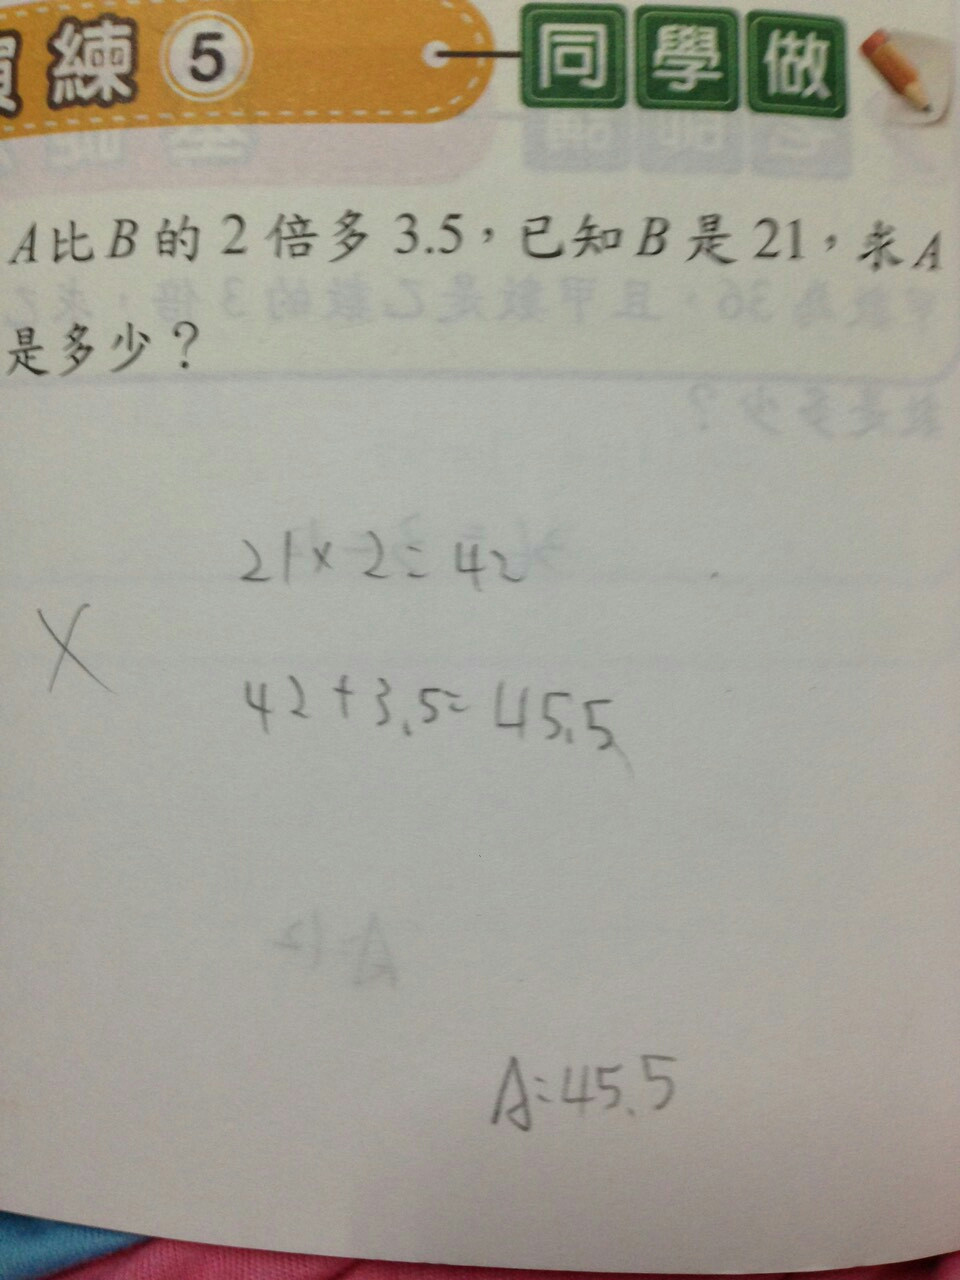 練 5 同學做
A比B的2倍多3.5，已知B是21，求A
是多少？
21×2=42
X
42+3.5=45.5
A:45.5